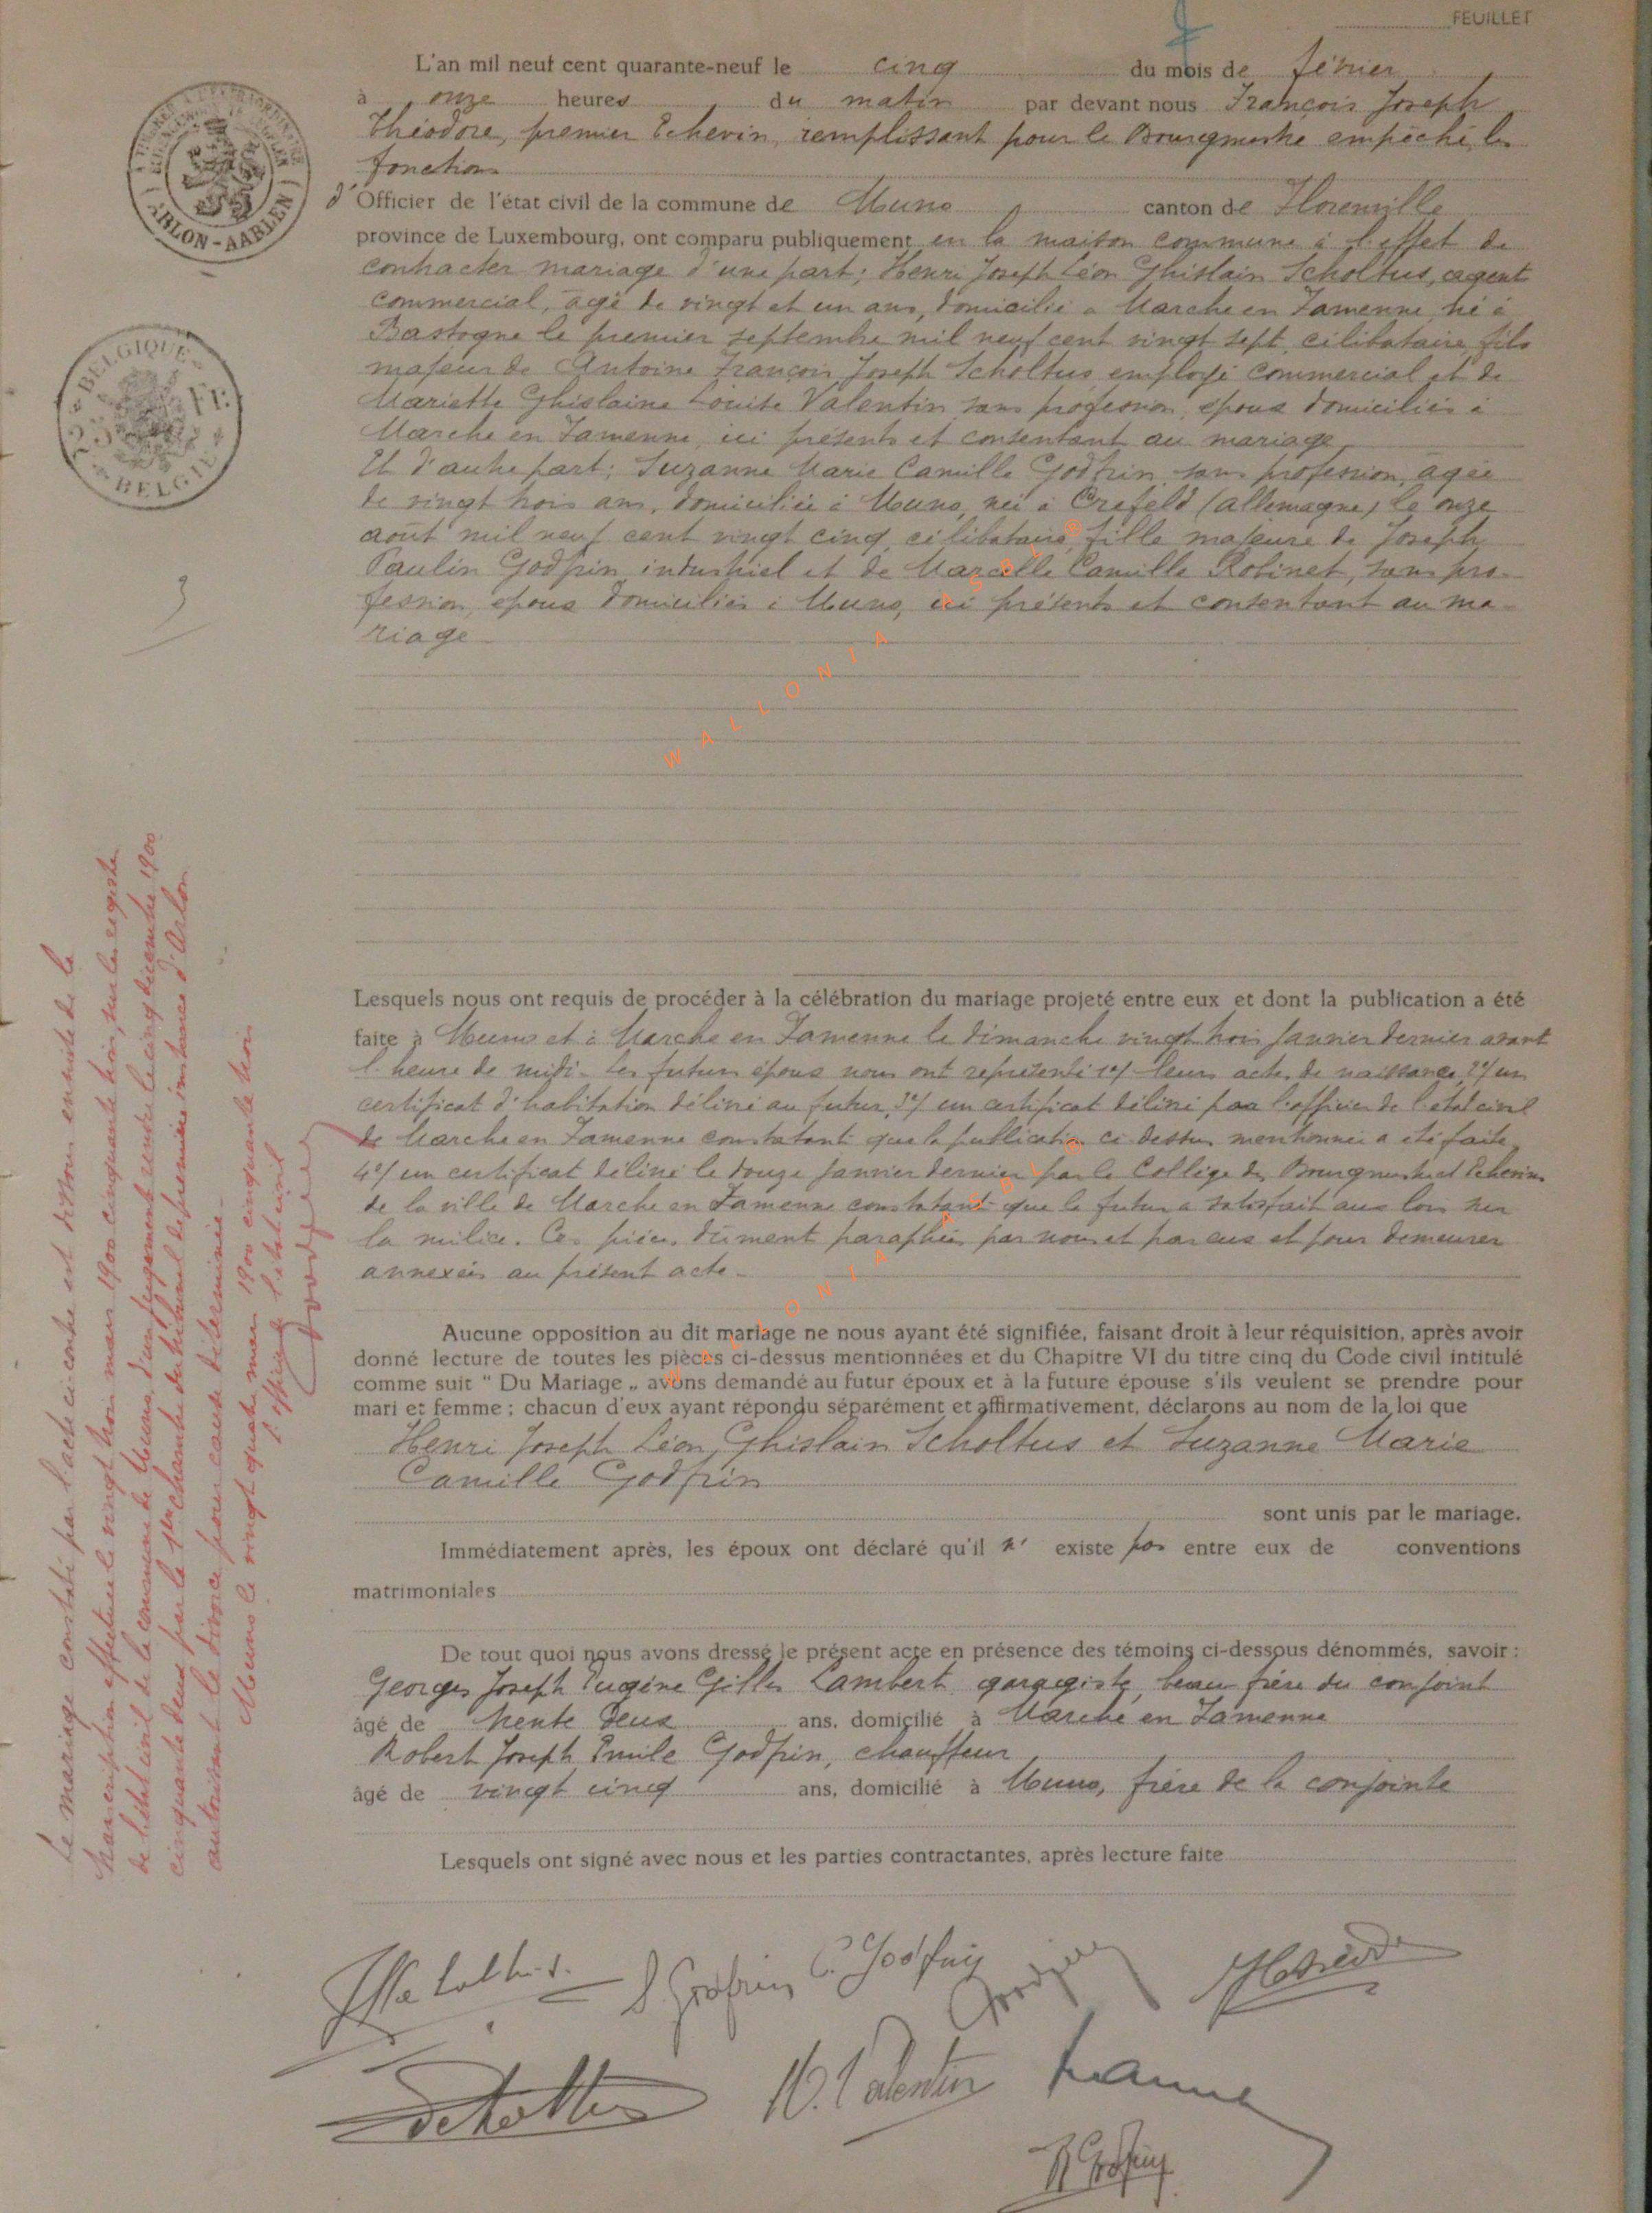 FEUILLET
L'an mil neuf cent quarante-neuf le cinq du mois de février
à onze heures du matin par devant nous François Joseph
Théodore, premier Echevin, remplissant pour le Bourgmestre empêché, les
fonctions
d'Officier de l'état civil de la commune de Muno canton de Florenville
province de Luxembourg, ont comparu publiquement en la maison commune à l'effet de
contracter mariage d'une part; Henri Joseph Léon Ghislain Scholtus, agent
commercial, âgé de vingt et un ans, domicilié à Marche en Famenne, né à
Bastogne le premier septembre mil neuf cent vingt sept, célibataire, fils
majeur de Antoine François Joseph Scholtus employé commercial et de
Mariette Ghislaine Louise Valentin sans profession, époux domiciliés à
Marche en Famenne, ici présents et consentant au mariage
Et d'autre part; Suzanne Marie Camille Godfrin, sans profession, agée
de vingt trois ans, domiciliée à Muno, née à Crefeld (allemagne) le onze
août mil neuf cent vingt cinq, célibataire, fille majeure de Joseph
Paulin Godfrin industriel et de Marcelle Camille Robinet, sans pro-
fession, époux domiciliés à Muno, ici présents et consentant au ma-
riage
Lesquels nous ont requis de procéder à la célébration du mariage projeté entre eux et dont la publication a été
faite à Muno et à Marche en Famenne le dimanche vingt trois janvier dernier avant
l'heure de midi. les futurs époux nous ont représenté 1°/ leurs actes de naissance, 2°/ un
certificat d'habitation délivré au futur, 3°/ un certificat délivré par l'officier de l'état civil
de Marche en Famenne constatant que la publication ci-dessus mentionnée a été faite,
4°/ un certificat délivré le douze janvier dernier par le Collège des Bourgmestre et Echevins
de la ville de Marche en Famenne constatant que le futur a satisfait aux lois sur
la milice. Ces pièces dûment paraphées par nous et par eux et pour demeurer
annexées au présent acte -
Aucune opposition au dit mariage ne nous ayant été signifiée, faisant droit à leur réquisition, après avoir
donné lecture de toutes les pièces ci-dessus mentionnées et du Chapitre VI du titre cinq du Code civil intitulé
comme suit " Du Mariage „ avons demandé au futur époux et à la future épouse s'ils veulent se prendre pour
mari et femme ; chacun d'eux ayant répondu séparément et affirmativement, déclarons au nom de la loi que
Henri Joseph Léon, Ghislain Scholtus et Suzanne Marie
Camille Godfrin
sont unis par le mariage.
Immédiatement après, les époux ont déclaré qu'il n' existe pas entre eux de conventions
matrimoniales
De tout quoi nous avons dressé le présent acte en présence des témoins ci-dessous dénommés, savoir :
Georges Joseph Eugène Gilles Lambert garagiste, beau frère du conjoint
âgé de trente deux ans, domicilié à Marche en Famenne
Robert Joseph Emile Godfrin, chauffeur
âgé de vingt cinq ans, domicilié à Muno, frère de la conjointe
Lesquels ont signé avec nous et les parties contractantes, après lecture faite
S Godfrin C. Godfrin
Scholtus M. Valentin
R Godfrin
Le mariage constaté par l'acte ci-contre est dissous ensuite de la
transcription effectuée le vingt trois mars 1900 cinquante trois, sur les registres
de l'état civil de la commune de Muno, d'un jugement rendu le cinq décembre 1900
cinquante deux par la 1ère chambre du tribunal de première instance d'Arlon
autorisant le divorce pour cause déterminée -
Muno le vingt quatre mars 1900 cinquante trois
L'officier de l'état civil
BELGIQUE
25 FR
BELGIË
ARLON - AARLEN
WALLONIA ASBL ®
WALLONIA ASBL ®